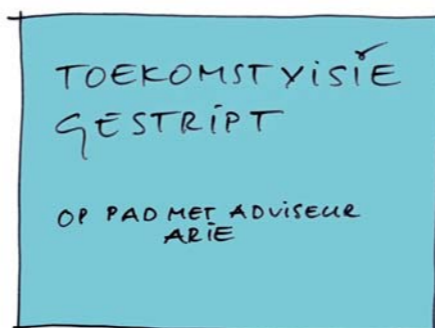 TOEKOMSTVISIE
GESTRIPT
OP PAD MET ADVISEUR
ARIE